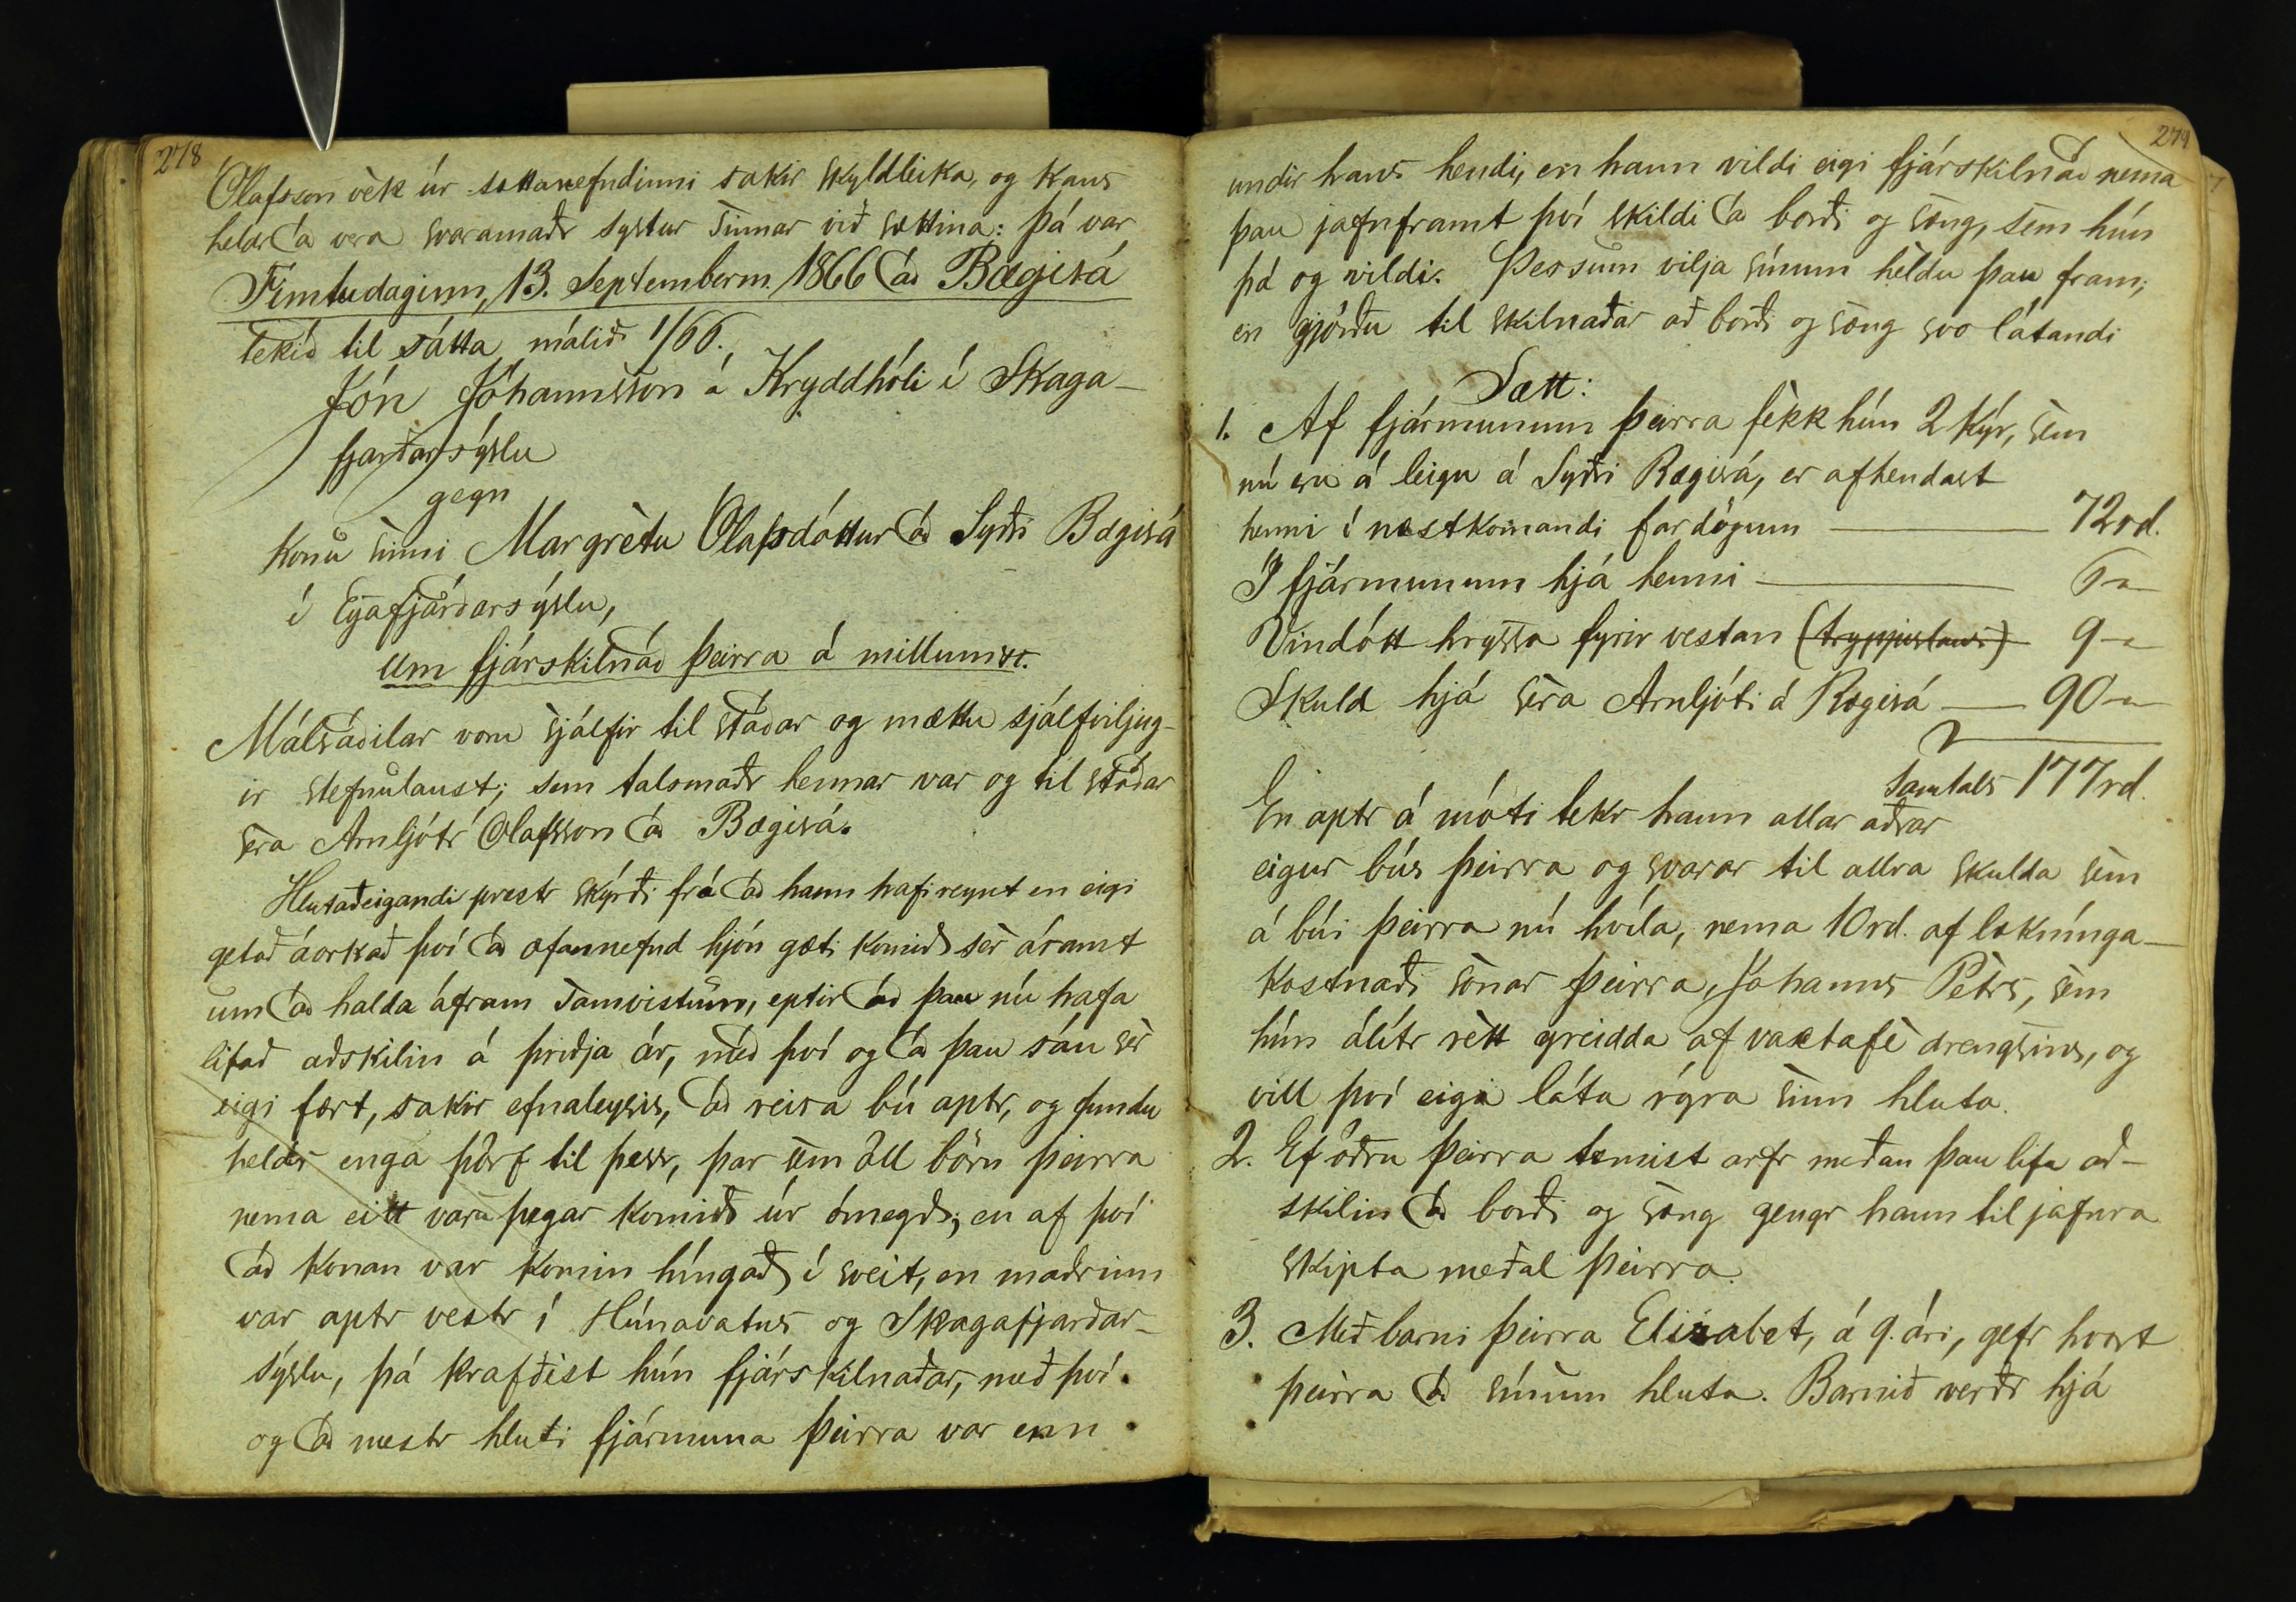 278
Ólafsson vèk úr sættanefndinni sakir skyldleika, og kaus
heldr að vera svaramaðr systur sinnar við sættina: þá var
Fimtudaginn, 13. Septemberm. 1866 að Bægisá
tekið til sátta málið 1/66.
Jón Jóhannsson á Kryddhóli í Skaga-
fjarðarsýslu
gegn
konu sinni Margrètu Ólafsdóttur að Syðri Bægisá
í Eyafjarðarsýslu,
um fjárskilnað þeirra á millum
Málsáðilar voru sjálfir til staðar og mættu sjálfviljug-
ir stefnulaust; sem talsmaðr hennar var og til staðar
sèra Arnljótr Ólafsson að Bægisá.
Hlutaðeigandi prestr skýrði frá að hann hafi reynt en eigi
getað áorkað því að ofannefnd hjón gæti komið sèr ásamt
um að halda áfram samvistum, eptir að þau nú hafa
lifað aðskilin á þriðja ár, með því og að þau sáu sèr
eigi fært, sakir efnaleysis, að reisa bú aptr, og fundu
heldr enga þörf til þess, þar sem öll börn þeirra
nema eitt voru þegar komið úr ómegð; en af því
að konan var komin híngað í sveit, en maðrinn
var aptr vestr í Húnavatns og Skagafjarðar-
sýslu, þá krafðist hún fjárskilnaðar, með því
og að mestr hluti fjármuna þeirra var enn
279
undir hans hendi, en hann vildi eigi fjárskilnað nema
þau jafnframt því skildi að borði og sæng, sem hún
þá og vildi. Þessum vilja sínum hèldu þau fram;
en gjörðu til skilnaðar að borði og sæng svo látandi
Sætt:
1. Af fjármunum þeirra fèkk hún 2 kýr, sem
nú eru á leigu á Syðri Bægisá, er afhendast
henni í næstkomandi fardögum — 72rd.
Í fjármunum hjá henni — 6 -
Vindótt hryssa fyrir vestan (tryppislaus) 9 -
Skuld hjá sèra Arnljóti á Bægisá — 90 -
Samtals 177rd.
En aptr á móti tekr hann allar aðrar
eigur bús þeirra og svarar til allra skulda sem
á búi þeirra nú hvíla, nema 10rd. af læknínga-
kostnaði sonar þeirra, Jóhanns Pètrs, sem
hún álítr rètt greidda af vaxtafè drengsins, og
vill því eigi láta rýra sinn hluta.
2. Ef öðru þeirra tæmist arfr meðan þau lifa að-
skilin að borði og sæng gengr hann til jafnra
skipta meðal þeirra.
3. Með barni þeirra Elisabet, á 9. ári, gefr hvort
þeirra að sínum hluta. Barnið verðr hjá